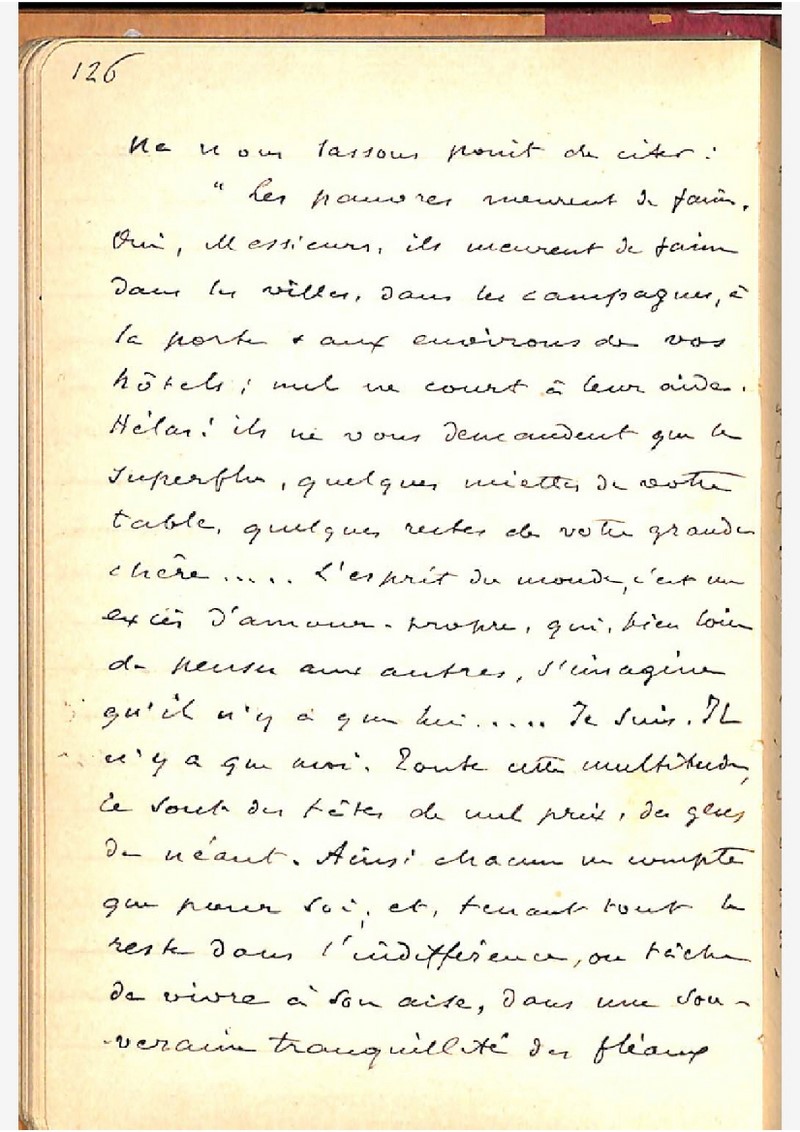 126
Ne nous lassons point de citer :
" Les pauvres meurent de faim.
Oui, Messieurs, ils meurent de faim
dans les villes, dans les campagnes, à
la porte & aux environs de vos
hôtels ; nul ne court à leur aide.
Hélas ! ils ne vous demandent que le
superflu, quelques miettes de votre
table, quelques restes de votre grande
chère ..... L'esprit du monde, c'est un
excès d'amour-propre, qui, bien loin
de penser aux autres, s'imagine
qu'il n'y a que lui ..... Je suis. Il
n'y a que moi. Toute cette multitude,
ce sont des têtes de nul prix, des gens
de néant. Ainsi chacun ne compte
que pour soi, et, tenant tout le
reste dans l'indifférence, on tâche
de vivre à son aise, dans une sou-
-veraine tranquillité des fléaux